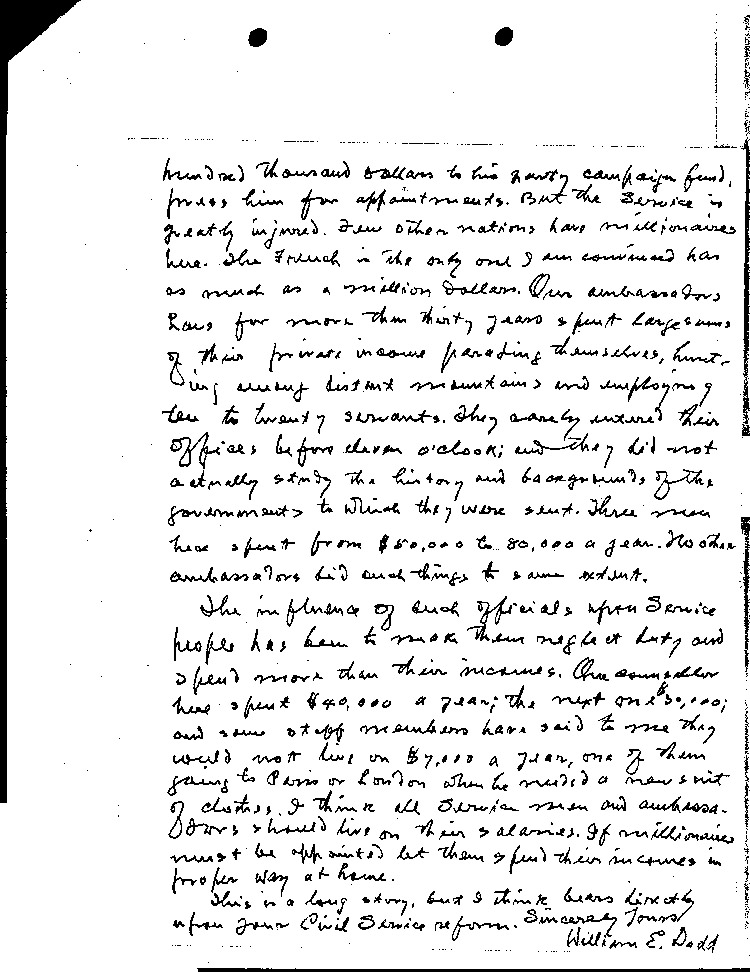 hundred thousand dollars to his party campaign fund,
press him for appointments. But the Service is
greatly injured. Few other nations have millionaires
here. The French is the only one I am convinced has
as much as a million dollars. Our ambassadors
have for more than thirty years spent large sums
of their private income parading themselves, hunt-
ing among distant mountains and employing
ten to twenty servants. They rarely entered their
offices before eleven o'clock; and they did not
actually study the history and backgrounds of the
governments to which they were sent. Three men
here spent from $50,000 to 80,000 a year. No other
ambassadors did such things to same extent.
The influence of such officials upon Service
people has been to make them neglect duty and
spend more than their incomes. One counsellor
here spent $40,000 a year; the next one $30,000;
and some staff members have said to me they
would not live on $7,000 a year, one of them
going to Paris or London when he needed a new suit
of clothes. I think all Service men and ambassa-
dors should live on their salaries. If millionaires
must be appointed let them spend their incomes in
proper way at home.
This is a long story, but I think bears directly
upon your Civil Service reform. Sincerely Yours
William E. Dodd